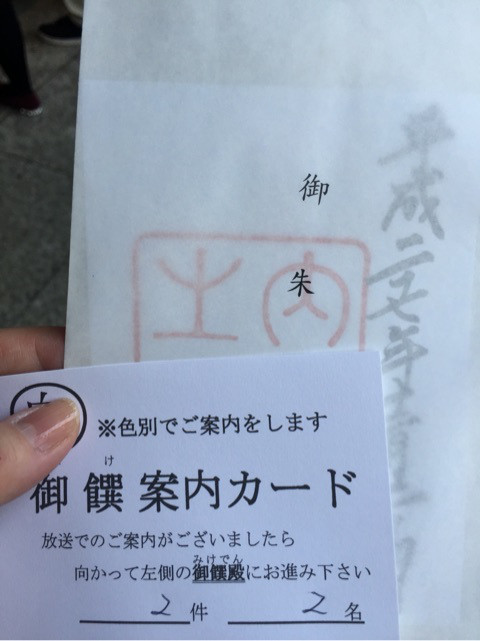 御朱
平成二
年
※色別でご案内をします
け
御饌案内カード
放送でのご案内がございましたら
みけでん
向かって左側の御饌殿にお進み下さい
2件 2名